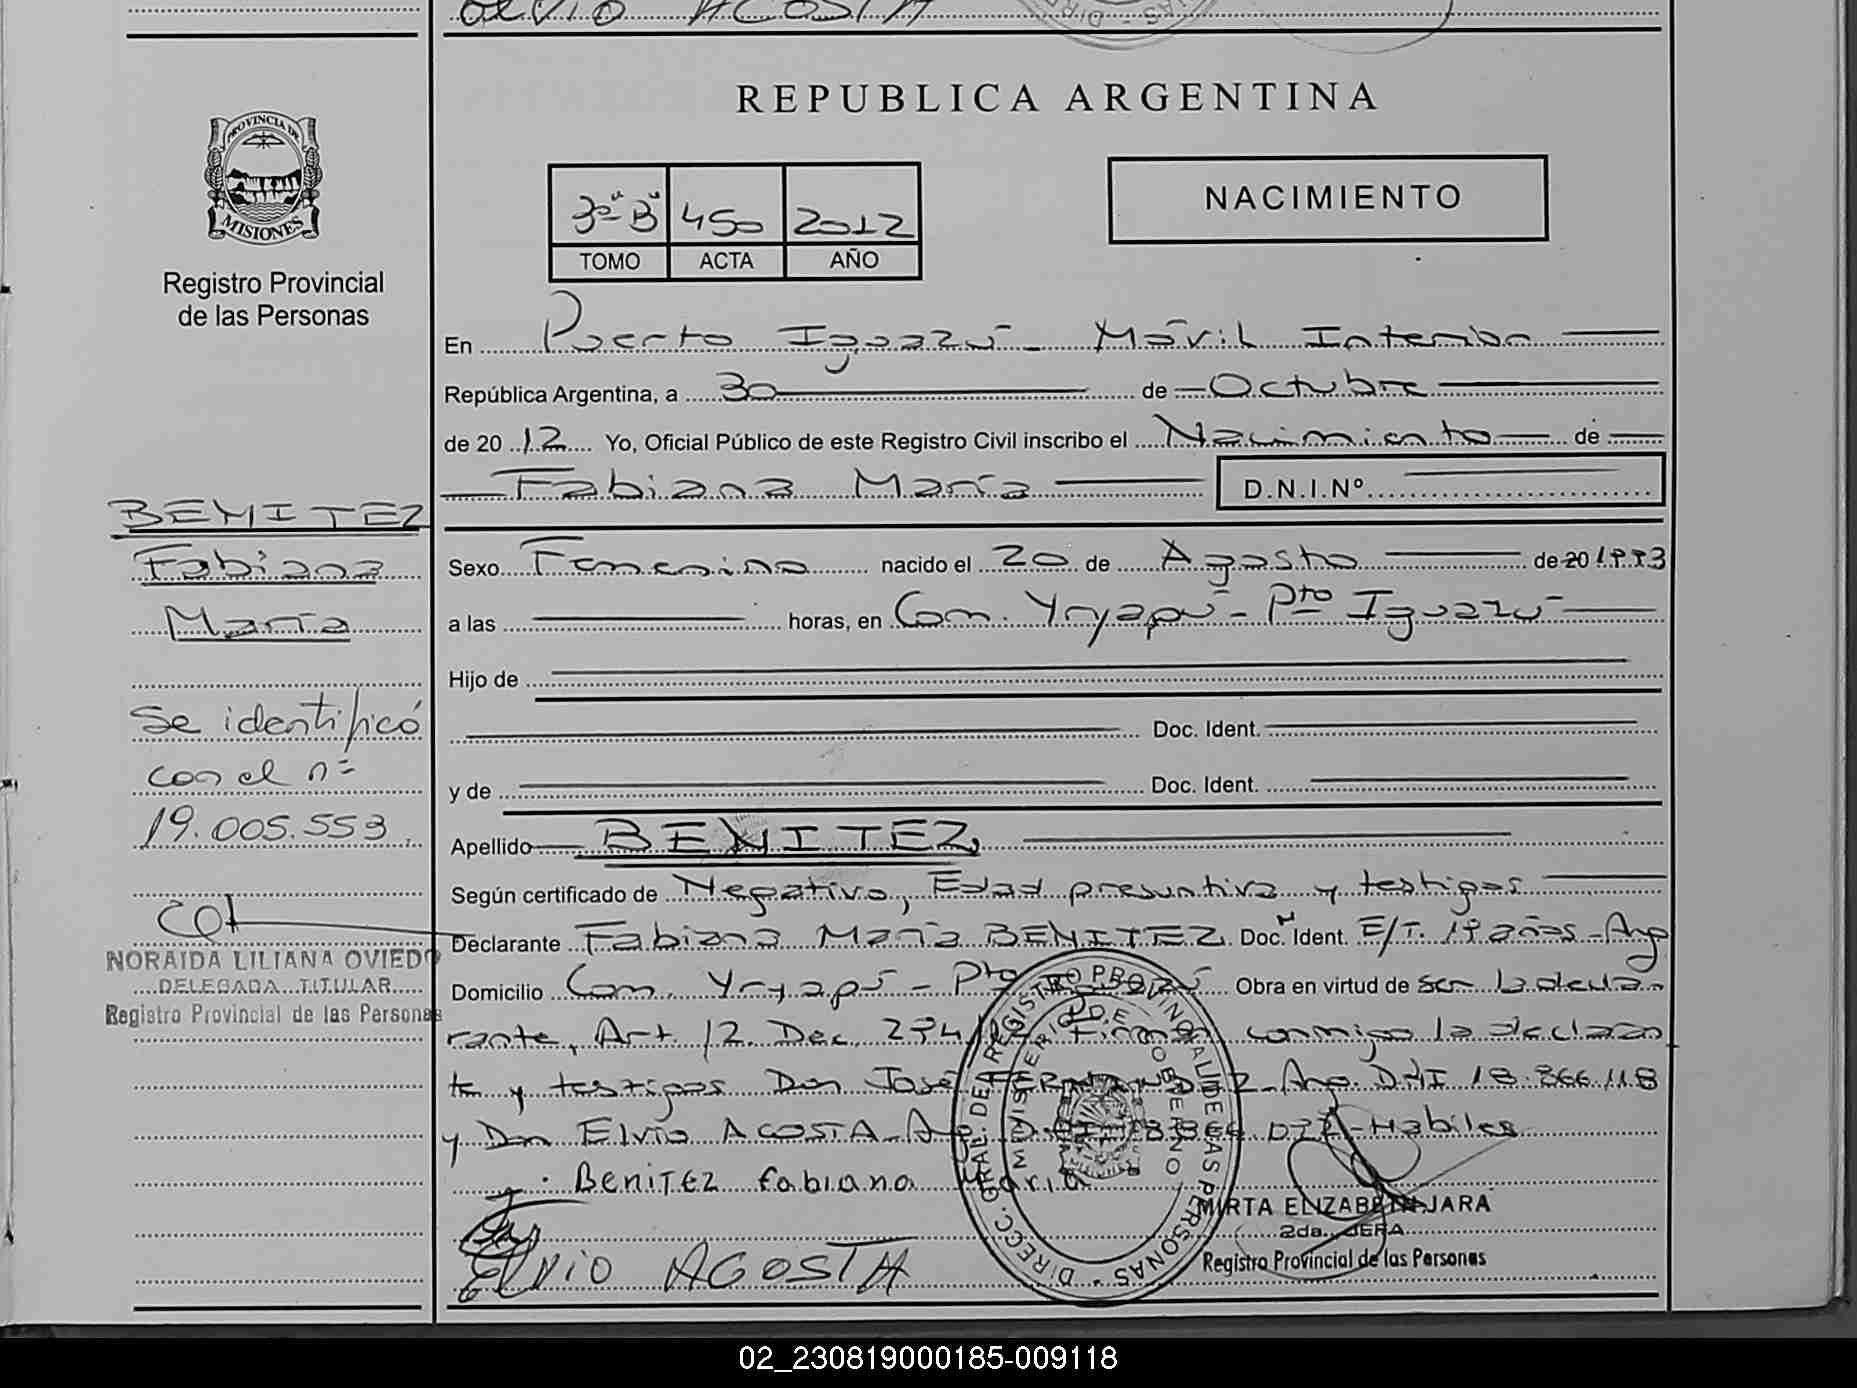 ELVIO ACOSTA
REPUBLICA ARGENTINA
PROVINCIA DE
MISIONES
Registro Provincial
de las Personas
3º "B" 450 2012
TOMO ACTA AÑO
NACIMIENTO
En Puerto Iguazú - Móvil Interior
República Argentina, a 30 de Octubre
de 20 12 Yo, Oficial Público de este Registro Civil inscribo el Nacimiento de
Fabiana María D.N.I.Nº
BENITEZ
Fabiana
María
Se identificó
con el nº
19.005.553.
NORAIDA LILIANA OVIEDO
DELEGADA TITULAR
Registro Provincial de las Personas
Sexo Femenino nacido el 20 de Agosto de 20 1993
a las horas, en Com. Yryapú - Pto Iguazú
Hijo de
Doc. Ident.
y de Doc. Ident.
Apellido BENITEZ
Según certificado de Negativo, Edad presuntiva y testigos
Declarante Fabiana María BENITEZ Doc. Ident. E/T. 19 años - Arg
Domicilio Com. Yryapú - Pto Iguazú Obra en virtud de ser la decla
rante, Art. 12. Dec. 234/ Firman conmigo la declaran
te y testigos Don José FERNANDEZ - Arg. DNI 18.866.118
y Don Elvio ACOSTA - Arg - Habiles
Benitez fabiana Maria
ELVIO ACOSTA
DIRECC. GRAL. DEL REGISTRO PROVINCIAL DE LAS PERSONAS
MINISTERIO DE GOBIERNO
MISIONES
MIRTA ELIZABETH JARA
2da. JEFA
Registro Provincial de las Personas
02_230819000185-009118